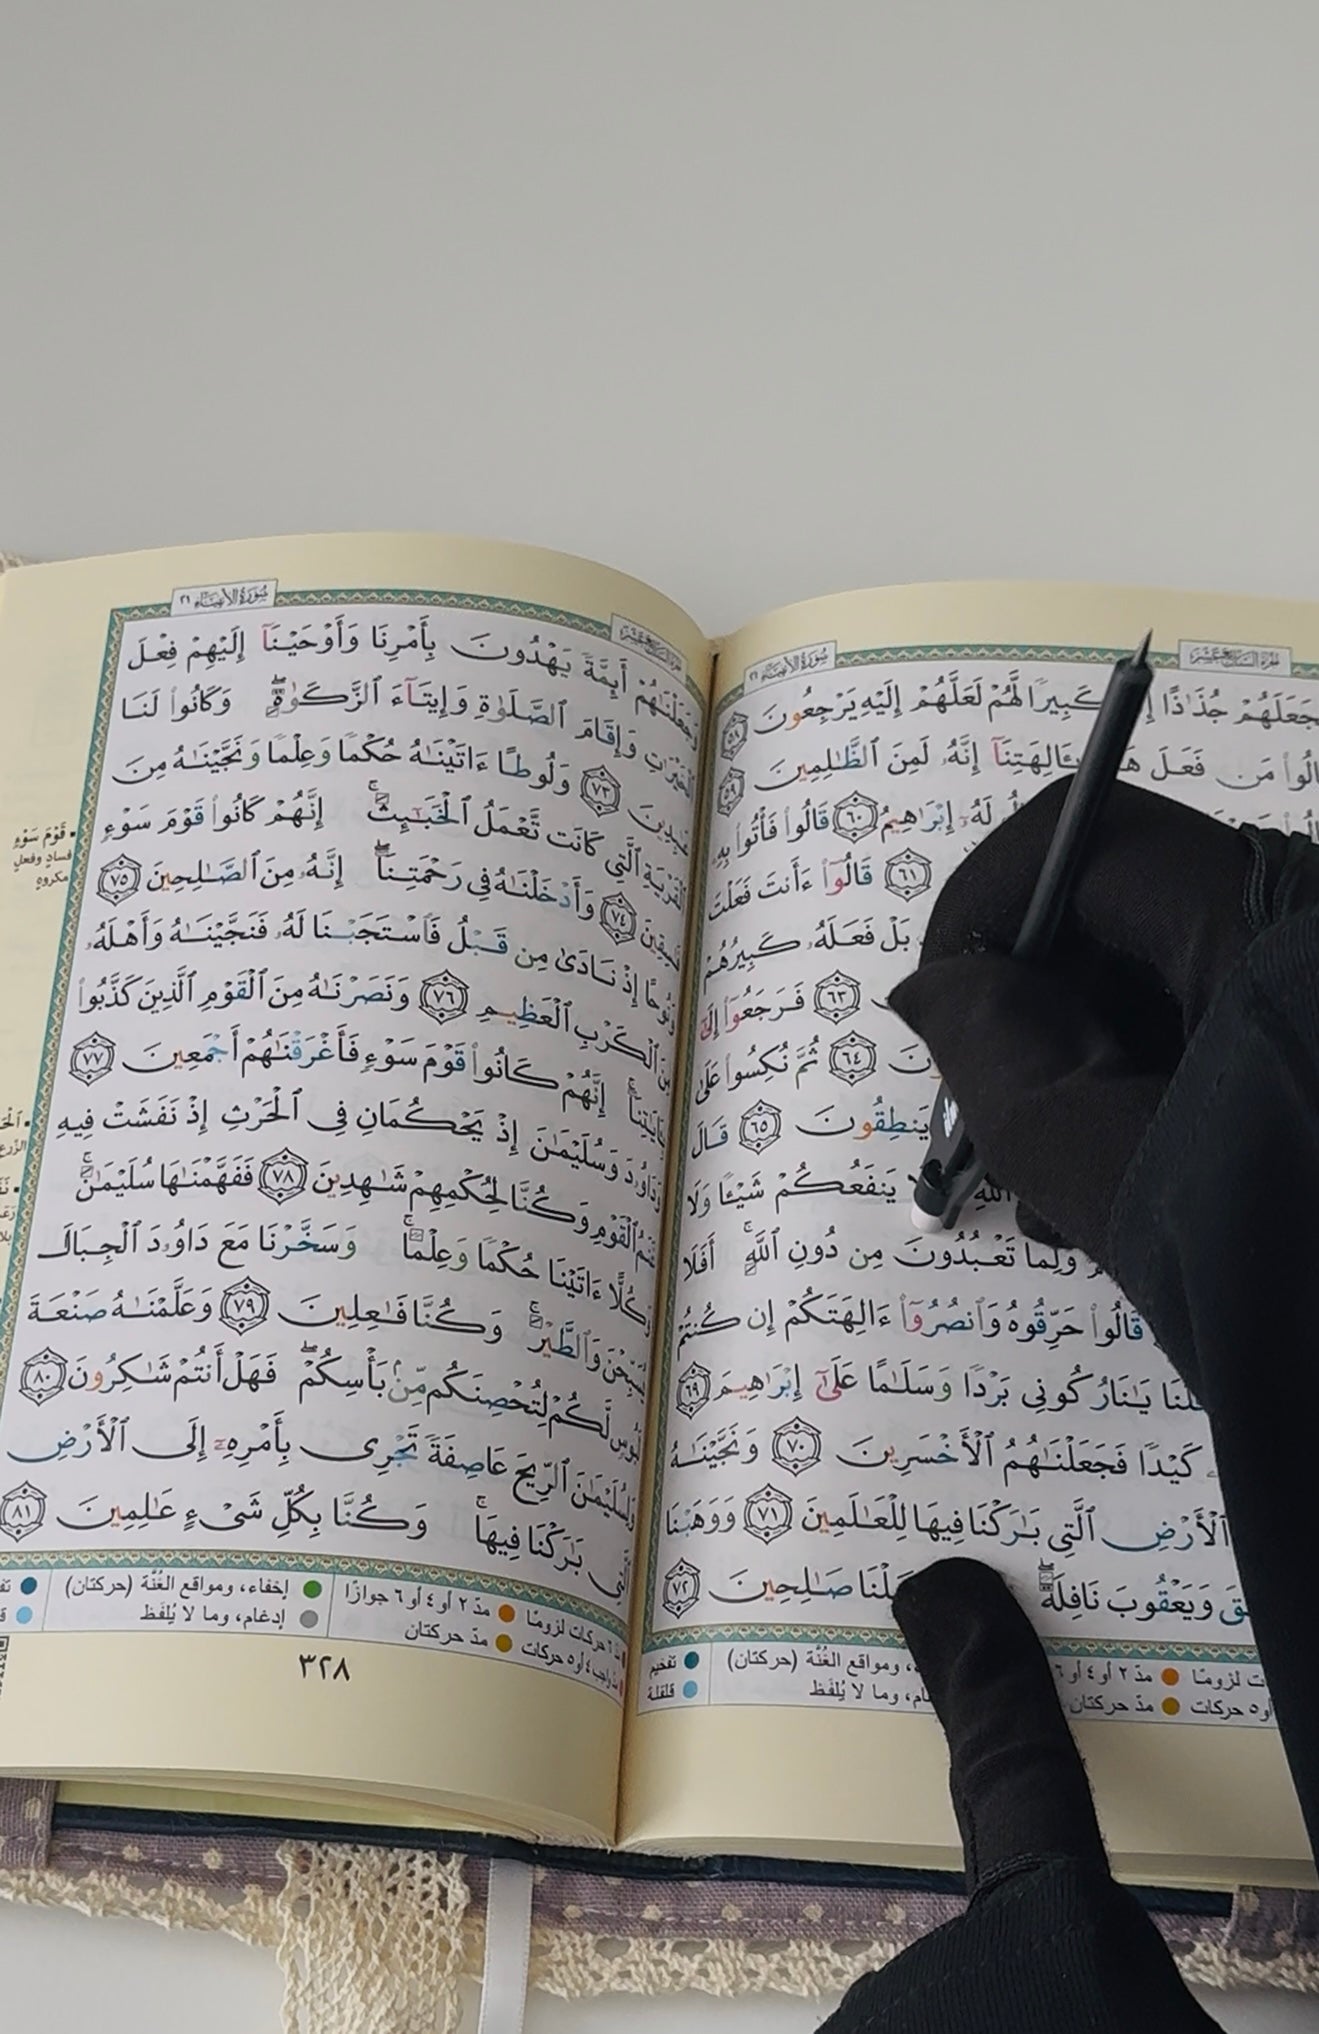 سُورَةُ الأَنبِيَاء
الجزء السابع عشر
فَجَعَلَهُمْ جُذَٰذًا كَبِيرًا لَّهُمْ لَعَلَّهُمْ إِلَيْهِ يَرْجِعُونَ ٥٨
قَالُوا۟ مَن فَعَلَ بِـَٔالِهَتِنَآ إِنَّهُۥ لَمِنَ ٱلظَّـٰلِمِينَ ٥٩
لَهُۥٓ إِبْرَٰهِيمُ ٦٠ قَالُوا۟ فَأْتُوا۟ بِهِۦ
٦١ قَالُوٓا۟ ءَأَنتَ فَعَلْتَ
بَلْ فَعَلَهُۥ كَبِيرُهُمْ
٦٣ فَرَجَعُوٓا۟ إِلَىٰٓ
٦٤ ثُمَّ نُكِسُوا۟ عَلَىٰ
يَنطِقُونَ ٦٥ قَالَ
ٱللَّهِ لَا يَنفَعُكُمْ شَيْـًٔا وَلَا
وَلِمَا تَعْبُدُونَ مِن دُونِ ٱللَّهِ ۖ أَفَلَا
قَالُوا۟ حَرِّقُوهُ وَٱنصُرُوٓا۟ ءَالِهَتَكُمْ إِن كُنتُمْ
قُلْنَا يَـٰنَارُ كُونِى بَرْدًا وَسَلَـٰمًا عَلَىٰٓ إِبْرَٰهِيمَ ٦٩
كَيْدًا فَجَعَلْنَـٰهُمُ ٱلْأَخْسَرِينَ ٧٠ وَنَجَّيْنَـٰهُ
ٱلْأَرْضِ ٱلَّتِى بَـٰرَكْنَا فِيهَا لِلْعَـٰلَمِينَ ٧١ وَوَهَبْنَا
وَيَعْقُوبَ نَافِلَةً ۖ جَعَلْنَا صَـٰلِحِينَ ٧٢
مدّ ٢ أو ٤ أو ٦ ومواقع الغُنَّة (حركتان) تفخيم
أو ٥ حركات مدّ حركتان وما لا يُلفَظ قلقلة
الجزء السابع عشر
سُورَةُ الأَنبِيَاء ٢١
وَجَعَلْنَـٰهُمْ أَئِمَّةً يَهْدُونَ بِأَمْرِنَا وَأَوْحَيْنَآ إِلَيْهِمْ فِعْلَ
ٱلْخَيْرَٰتِ وَإِقَامَ ٱلصَّلَوٰةِ وَإِيتَآءَ ٱلزَّكَوٰةِ ۖ وَكَانُوا۟ لَنَا
عَـٰبِدِينَ ٧٣ وَلُوطًا ءَاتَيْنَـٰهُ حُكْمًا وَعِلْمًا وَنَجَّيْنَـٰهُ مِنَ
ٱلْقَرْيَةِ ٱلَّتِى كَانَت تَّعْمَلُ ٱلْخَبَـٰٓئِثَ ۗ إِنَّهُمْ كَانُوا۟ قَوْمَ سَوْءٍ
فَـٰسِقِينَ ٧٤ وَأَدْخَلْنَـٰهُ فِى رَحْمَتِنَآ ۖ إِنَّهُۥ مِنَ ٱلصَّـٰلِحِينَ ٧٥
وَنُوحًا إِذْ نَادَىٰ مِن قَبْلُ فَٱسْتَجَبْنَا لَهُۥ فَنَجَّيْنَـٰهُ وَأَهْلَهُۥ
مِنَ ٱلْكَرْبِ ٱلْعَظِيمِ ٧٦ وَنَصَرْنَـٰهُ مِنَ ٱلْقَوْمِ ٱلَّذِينَ كَذَّبُوا۟
بِـَٔايَـٰتِنَآ ۚ إِنَّهُمْ كَانُوا۟ قَوْمَ سَوْءٍ فَأَغْرَقْنَـٰهُمْ أَجْمَعِينَ ٧٧
وَدَاوُۥدَ وَسُلَيْمَـٰنَ إِذْ يَحْكُمَانِ فِى ٱلْحَرْثِ إِذْ نَفَشَتْ فِيهِ
غَنَمُ ٱلْقَوْمِ وَكُنَّا لِحُكْمِهِمْ شَـٰهِدِينَ ٧٨ فَفَهَّمْنَـٰهَا سُلَيْمَـٰنَ ۚ
وَكُلًّا ءَاتَيْنَا حُكْمًا وَعِلْمًا ۚ وَسَخَّرْنَا مَعَ دَاوُۥدَ ٱلْجِبَالَ
يُسَبِّحْنَ وَٱلطَّيْرَ ۚ وَكُنَّا فَـٰعِلِينَ ٧٩ وَعَلَّمْنَـٰهُ صَنْعَةَ
لَبُوسٍ لَّكُمْ لِتُحْصِنَكُم مِّنۢ بَأْسِكُمْ ۖ فَهَلْ أَنتُمْ شَـٰكِرُونَ ٨٠
وَلِسُلَيْمَـٰنَ ٱلرِّيحَ عَاصِفَةً تَجْرِى بِأَمْرِهِۦٓ إِلَى ٱلْأَرْضِ
ٱلَّتِى بَـٰرَكْنَا فِيهَا ۚ وَكُنَّا بِكُلِّ شَىْءٍ عَـٰلِمِينَ ٨١
قَوْمَ سَوْءٍ
فسادٍ وفعلٍ
مكروهٍ
مدّ ٦ حركات لزومًا مدّ ٢ أو ٤ أو ٦ جوازًا إخفاء، ومواقع الغُنَّة (حركتان)
مدّ واجب ٤ أو ٥ حركات مدّ حركتان إدغام، وما لا يُلفَظ
٣٢٨